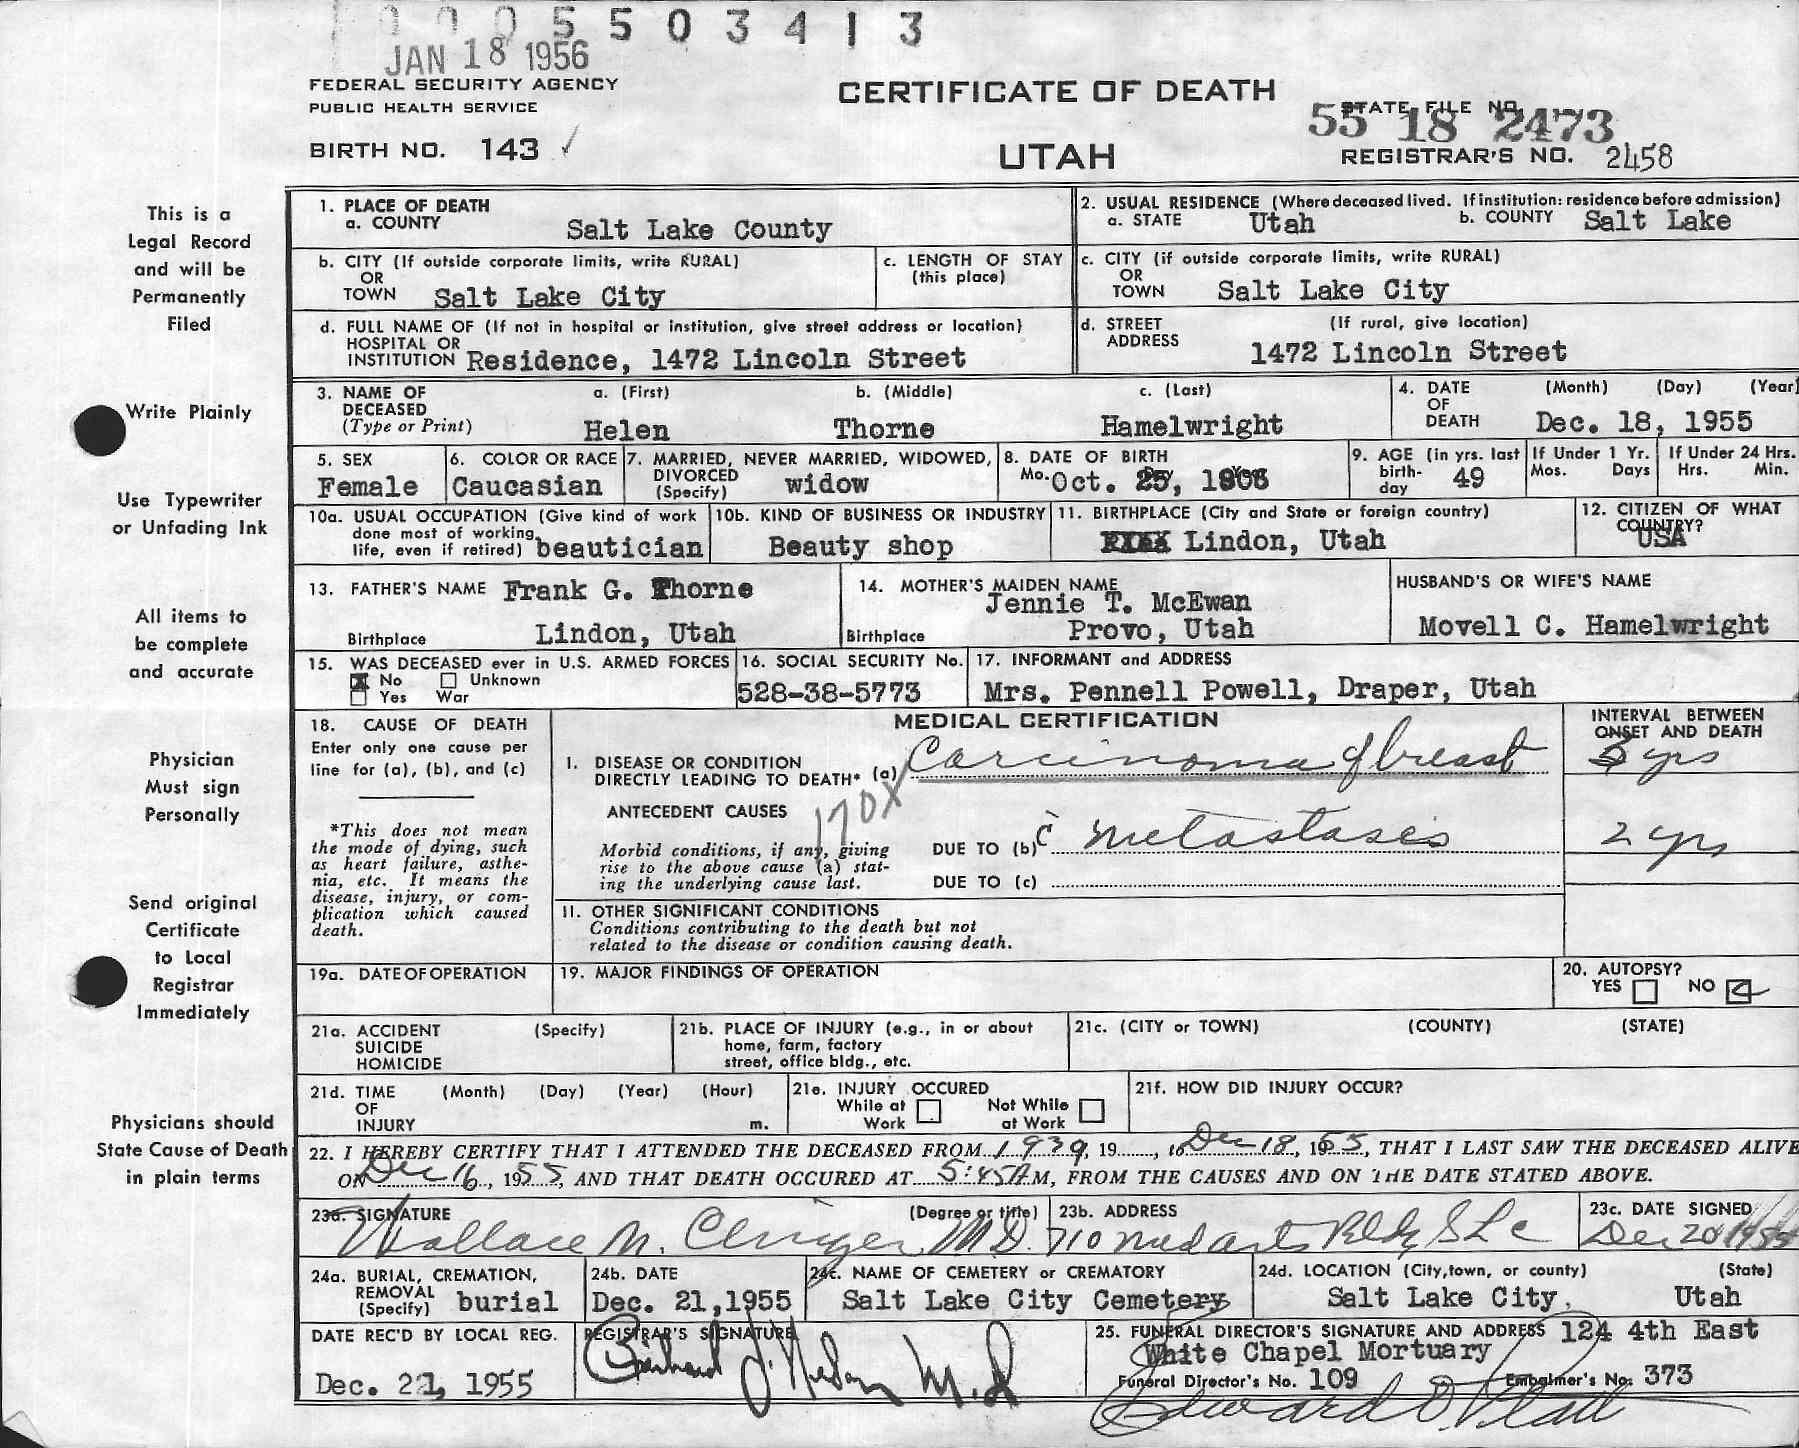 0005503413
JAN 18 1956
FEDERAL SECURITY AGENCY
PUBLIC HEALTH SERVICE
BIRTH NO. 143 ✓
CERTIFICATE OF DEATH
UTAH
STATE FILE NO.
55 18 2473
REGISTRAR'S NO. 2458
This is a
Legal Record
and will be
Permanently
Filed
Write Plainly
Use Typewriter
or Unfading Ink
All items to
be complete
and accurate
Physician
Must sign
Personally
Send original
Certificate
to Local
Registrar
Immediately
Physicians should
State Cause of Death
in plain terms
1. PLACE OF DEATH
a. COUNTY Salt Lake County
2. USUAL RESIDENCE (Where deceased lived. If institution: residence before admission)
a. STATE Utah b. COUNTY Salt Lake
b. CITY (If outside corporate limits, write RURAL)
OR
TOWN Salt Lake City
c. LENGTH OF STAY
(this place)
c. CITY (if outside corporate limits, write RURAL)
OR
TOWN Salt Lake City
d. FULL NAME OF (If not in hospital or institution, give street address or location)
HOSPITAL OR
INSTITUTION Residence, 1472 Lincoln Street
d. STREET (If rural, give location)
ADDRESS 1472 Lincoln Street
3. NAME OF DECEASED
(Type or Print)
a. (First) b. (Middle) c. (Last)
Helen Thorne Hamelwright
4. DATE OF DEATH (Month) (Day) (Year)
Dec. 18, 1955
5. SEX
Female
6. COLOR OR RACE
Caucasian
7. MARRIED, NEVER MARRIED, WIDOWED,
DIVORCED
(Specify) widow
8. DATE OF BIRTH
Mo. Oct. 25, 1906
9. AGE (in yrs. last
birth-
day 49
If Under 1 Yr.
Mos. Days
If Under 24 Hrs.
Hrs. Min.
10a. USUAL OCCUPATION (Give kind of work
done most of working
life, even if retired) beautician
10b. KIND OF BUSINESS OR INDUSTRY
Beauty shop
11. BIRTHPLACE (City and State or foreign country)
Lindon, Utah
12. CITIZEN OF WHAT
COUNTRY?
USA
13. FATHER'S NAME Frank G. Thorne
Birthplace Lindon, Utah
14. MOTHER'S MAIDEN NAME
Jennie T. McEwan
Birthplace Provo, Utah
HUSBAND'S OR WIFE'S NAME
Movell C. Hamelwright
15. WAS DECEASED ever in U.S. ARMED FORCES
☒ No ☐ Unknown
☐ Yes War
16. SOCIAL SECURITY No.
528-38-5773
17. INFORMANT and ADDRESS
Mrs. Pennell Powell, Draper, Utah
18. CAUSE OF DEATH
Enter only one cause per
line for (a), (b), and (c)
*This does not mean
the mode of dying, such
as heart failure, asthe-
nia, etc. It means the
disease, injury, or com-
plication which caused
death.
MEDICAL CERTIFICATION
INTERVAL BETWEEN
ONSET AND DEATH
I. DISEASE OR CONDITION
DIRECTLY LEADING TO DEATH* (a) Carcinoma of breast
yrs
170X
ANTECEDENT CAUSES
Morbid conditions, if any, giving
rise to the above cause (a) stat-
ing the underlying cause last.
DUE TO (b) c̄ metastases 2 yrs
DUE TO (c)
II. OTHER SIGNIFICANT CONDITIONS
Conditions contributing to the death but not
related to the disease or condition causing death.
19a. DATE OF OPERATION
19. MAJOR FINDINGS OF OPERATION
20. AUTOPSY?
YES ☐ NO ☑
21a. ACCIDENT (Specify)
SUICIDE
HOMICIDE
21b. PLACE OF INJURY (e.g., in or about
home, farm, factory
street, office bldg., etc.
21c. (CITY or TOWN) (COUNTY) (STATE)
21d. TIME (Month) (Day) (Year) (Hour)
OF
INJURY m.
21e. INJURY OCCURED
While at Work ☐ Not While at Work ☐
21f. HOW DID INJURY OCCUR?
22. I HEREBY CERTIFY THAT I ATTENDED THE DECEASED FROM 1939, 19......, to Dec 18, 1955, THAT I LAST SAW THE DECEASED ALIVE
ON Dec 16, 1955, AND THAT DEATH OCCURED AT 5:45 A M, FROM THE CAUSES AND ON THE DATE STATED ABOVE.
23a. SIGNATURE (Degree or title)
Wallace M. Clinger M.D.
23b. ADDRESS
710 Med arts Bldg SLC
23c. DATE SIGNED
Dec 20 1955
24a. BURIAL, CREMATION,
REMOVAL
(Specify) burial
24b. DATE
Dec. 21,1955
24c. NAME OF CEMETERY or CREMATORY
Salt Lake City Cemetery
24d. LOCATION (City, town, or county) (State)
Salt Lake City, Utah
DATE REC'D BY LOCAL REG.
Dec. 21, 1955
REGISTRAR'S SIGNATURE
M.D.
25. FUNERAL DIRECTOR'S SIGNATURE AND ADDRESS 124 4th East
White Chapel Mortuary
Funeral Director's No. 109 Embalmer's No. 373
Edward